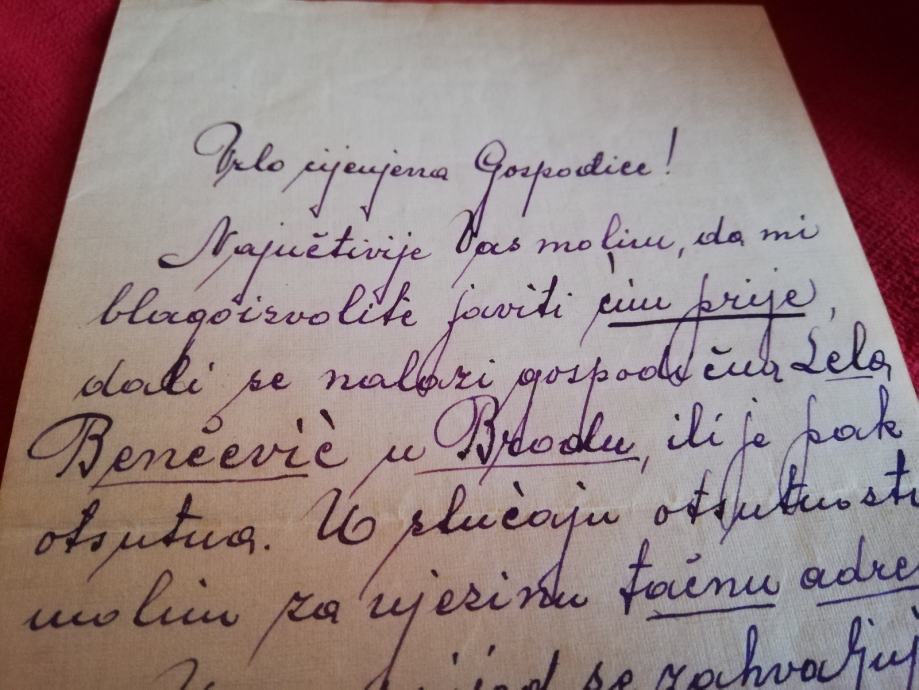 Vrlo cijenjena Gospodice!
Najučtivije Vas molim, da mi
blagoizvolite javiti čim prije,
dali se nalazi gospodična Lela
Benčević u Brodu, ili je pak
otsutna. U slučaju otsutnosti
molim za njezinu tačnu adre
se zahvaljuj